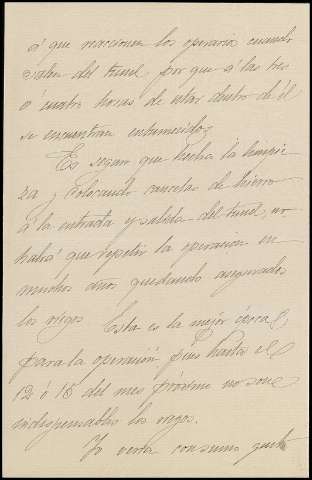 á que reaccionen los operarios cuando
salen del tunel, por que á las tres
ó cuatro horas de estar dentro de él
se encuentran entumecidos
Es seguro que hecha la limpie
za y colocando cancelas de hierro
á la entrada y salida del tunel, no
habrá que repetir la operacion en
muchos años quedando asegurados
los riegos Esta es la mejor época
para la operación, pues hasta el
12 ó 15 del mes próximo no son
indispensables los riegos.
Yo veria con sumo gusto